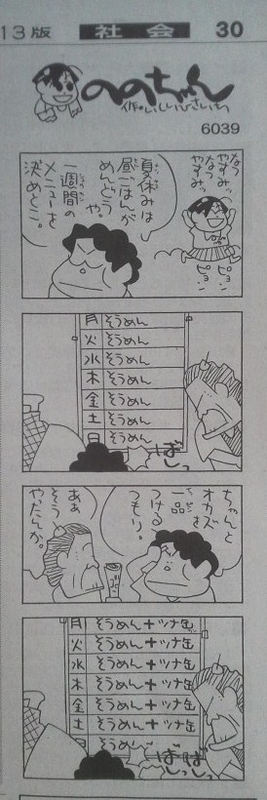 13版
社会
30
ののちゃん
作・いしいひさいち
6039
なつ
やすみ。
なつ
やすみ。
ピョン
ピョン
夏休みは
昼ごはんが
めんどうや。
一週間の
メニューを
決めとこ。
月 そうめん
火 そうめん
水 そうめん
木 そうめん
金 そうめん
土 そうめん
日 そうめん
ばしっ
ちゃんと
オカズを
一品
つける
つもり。
ああ
そう
やったんか。
月 そうめん+ツナ缶
火 そうめん+ツナ缶
水 そうめん+ツナ缶
木 そうめん+ツナ缶
金 そうめん+ツナ缶
土 そうめん+ツナ缶
日 そうめん
ばしっ
ばしっ